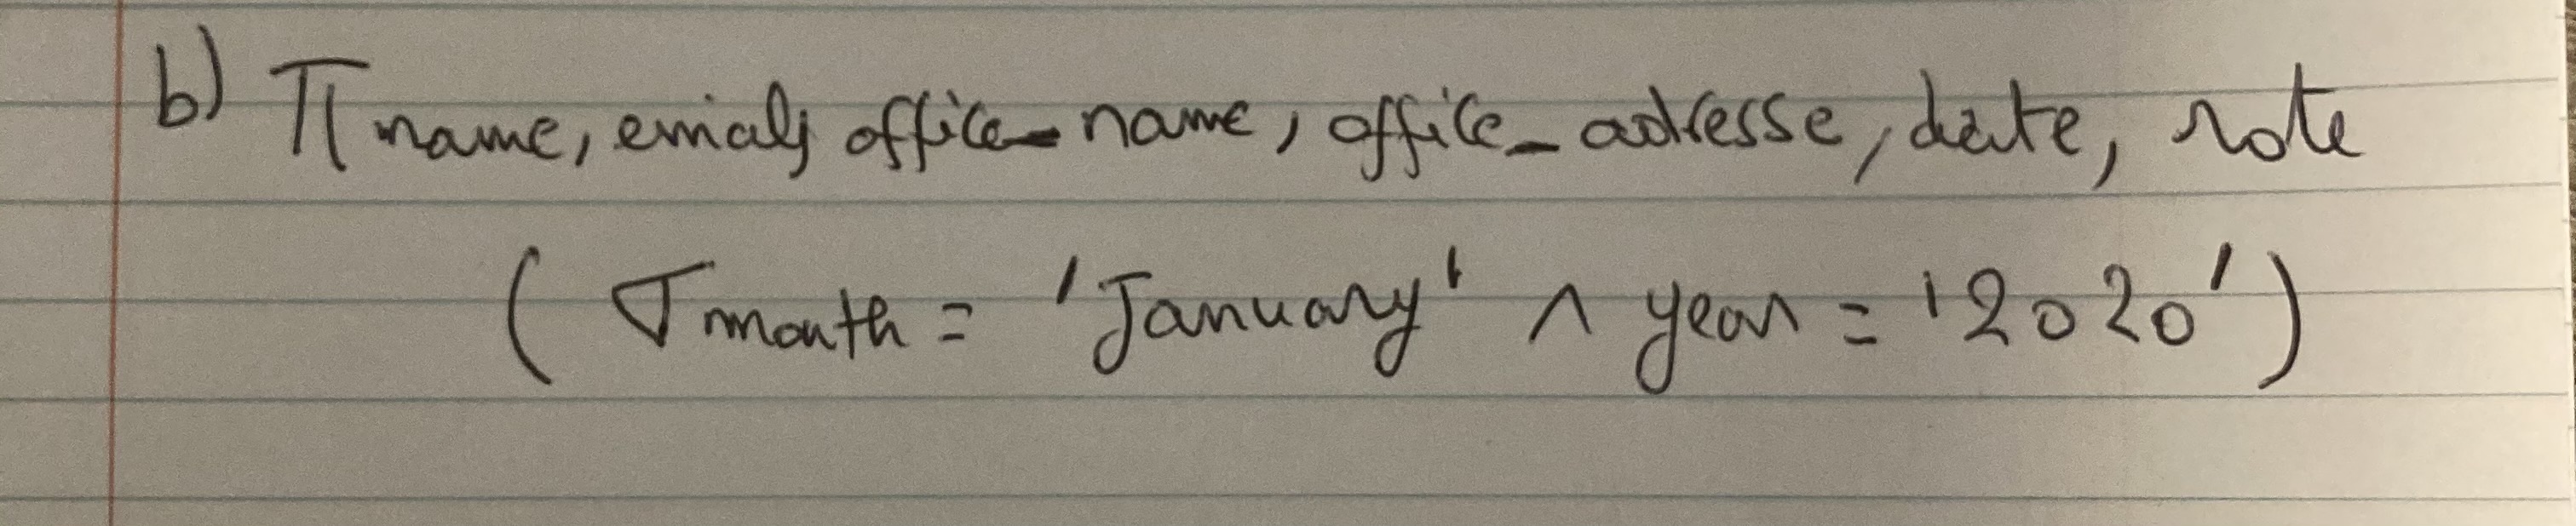 b) π name, email, office_name, office_adresse, date, note
( σ month = 'January' ∧ year = '2020' )